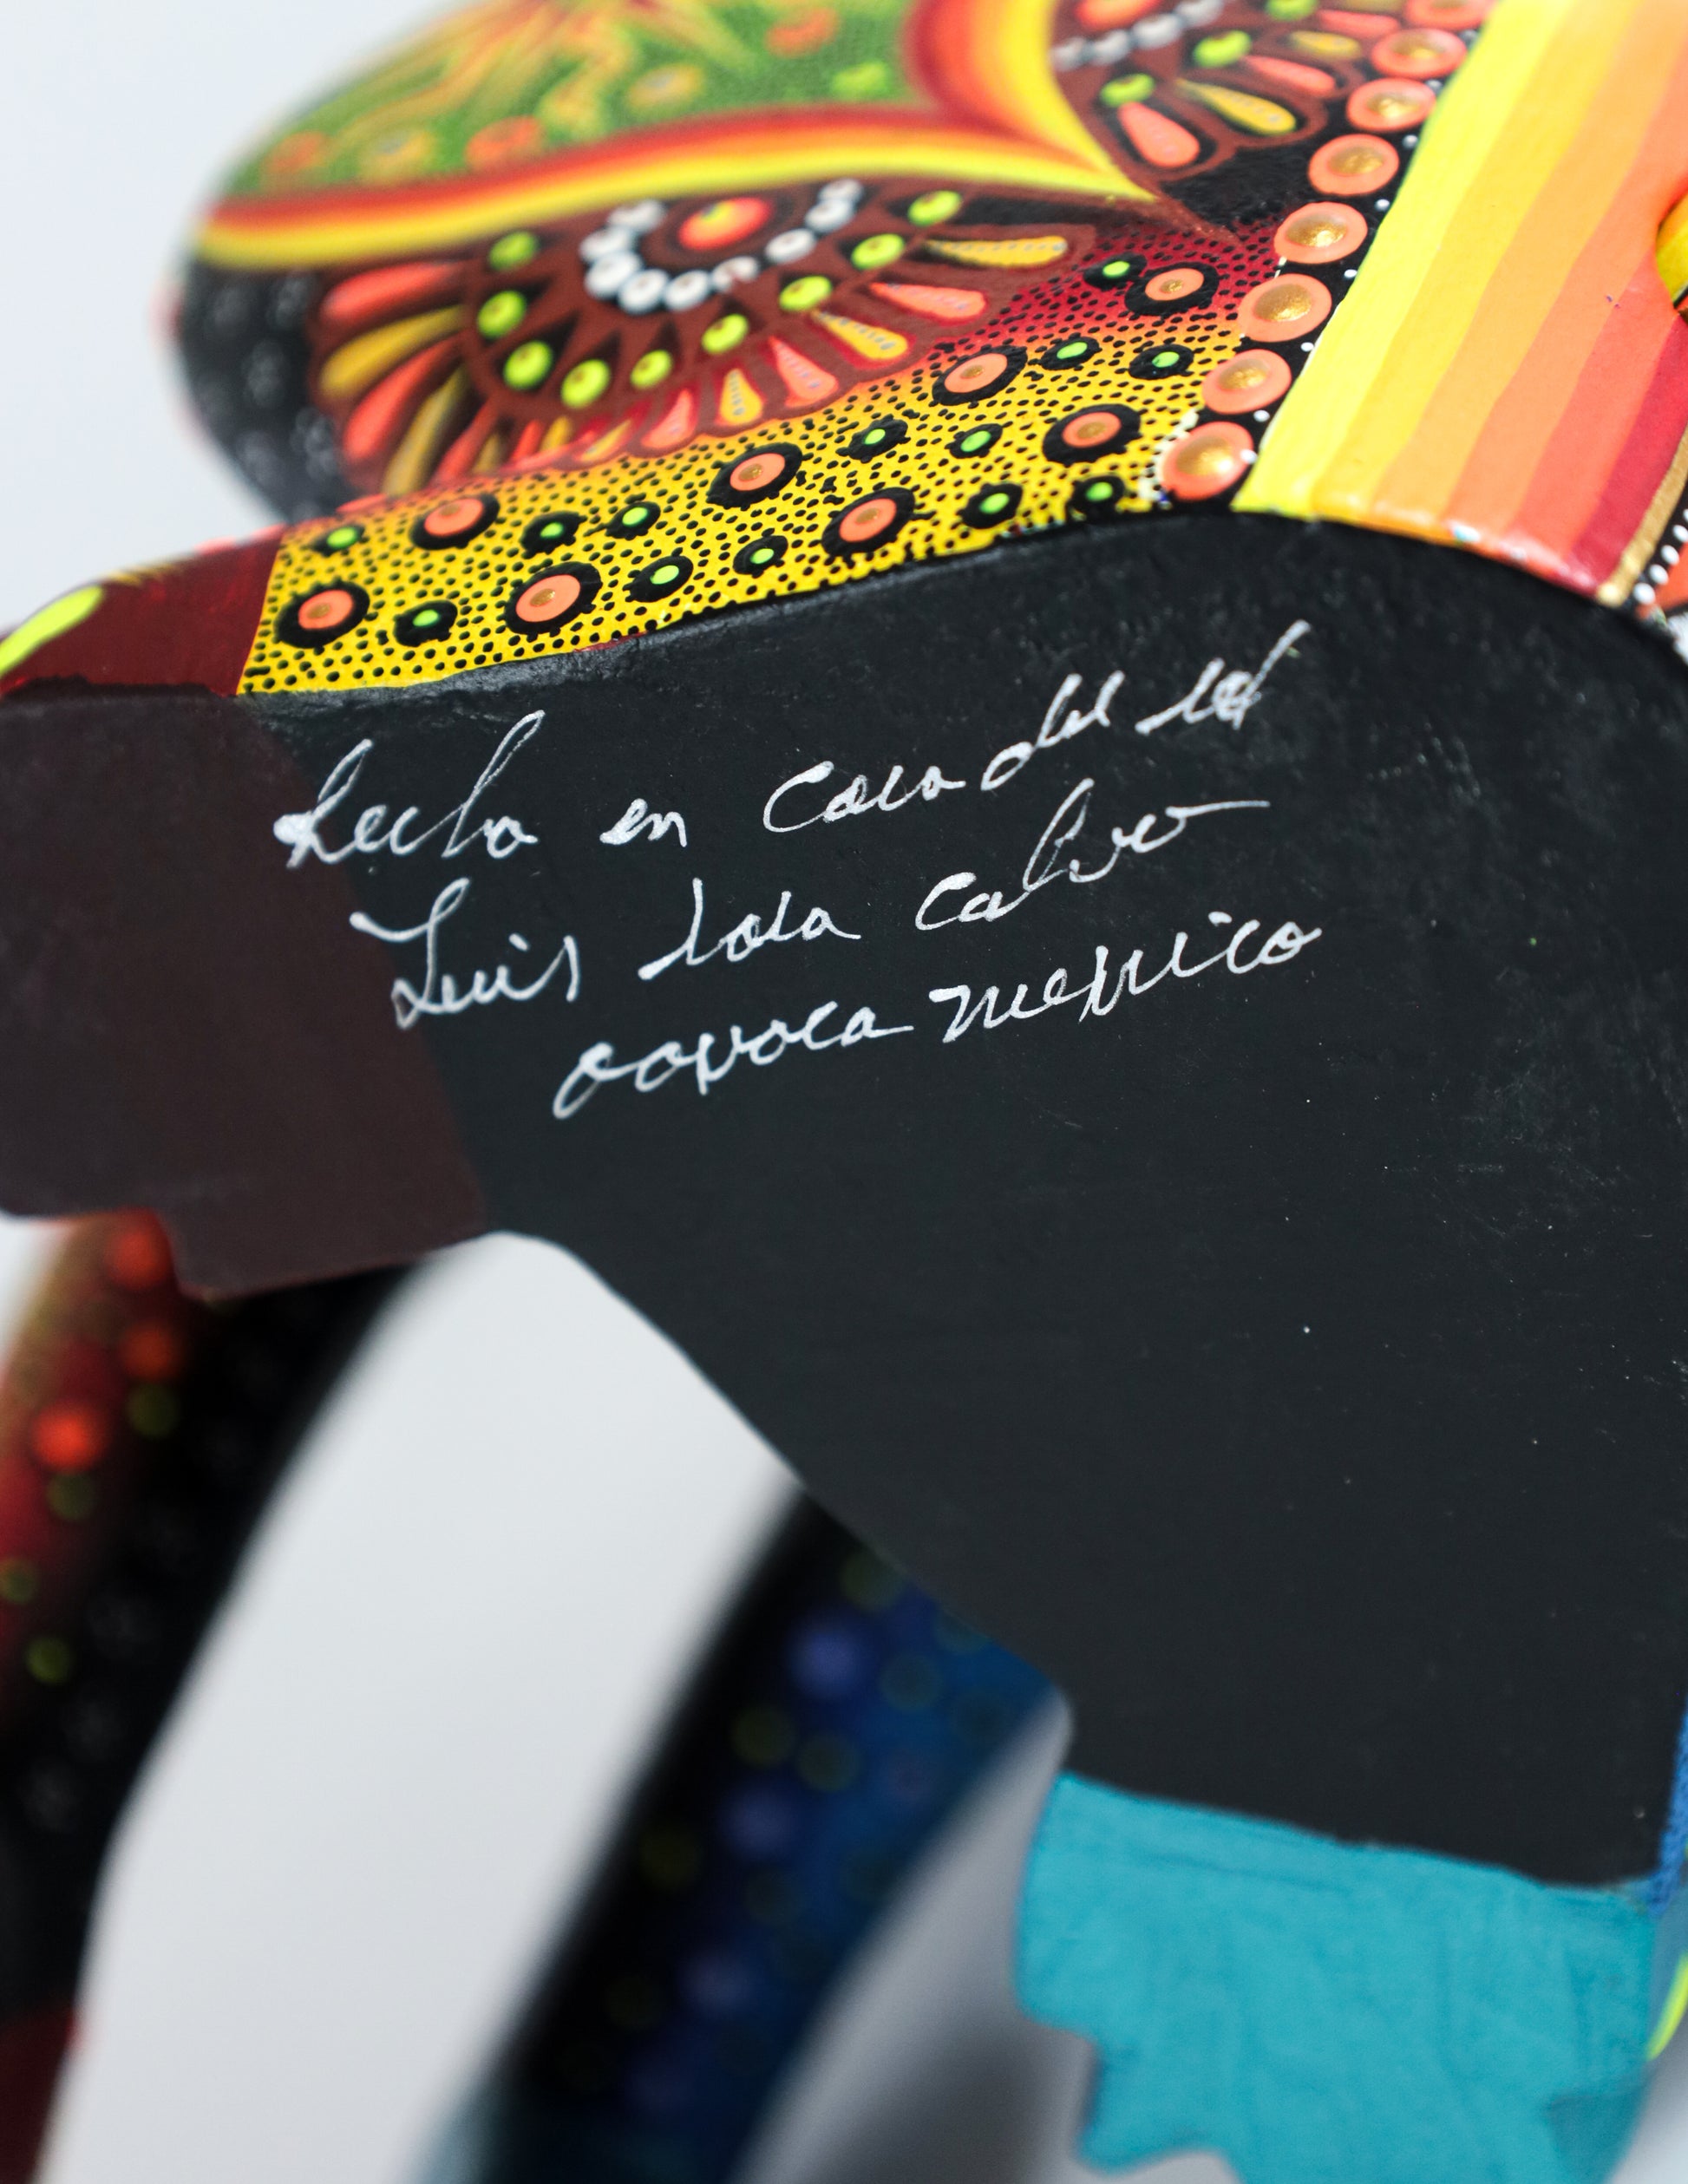 Hecho en casa del
Luis sosa calvo
oaxaca mexico